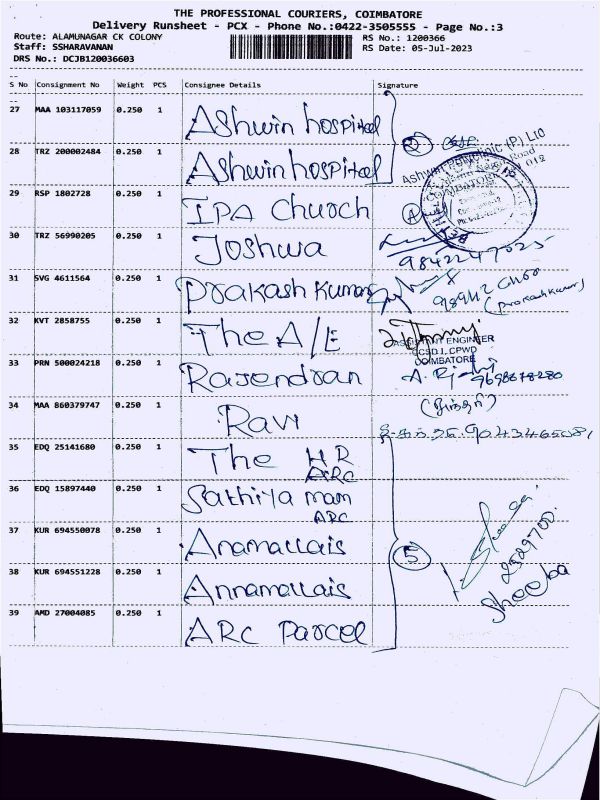 THE PROFESSIONAL COURIERS, COIMBATORE
Delivery Runsheet - PCX - Phone No.:0422-3505555 - Page No.:3
Route: ALAMUNAGAR CK COLONY RS No.: 1200366
Staff: SSHARAVANAN RS Date: 05-Jul-2023
DRS No.: DCJB120036603
S No Consignment No Weight PCS Consignee Details Signature
27 MAA 103117059 0.250 1 Ashwin hospital
28 TRZ 200002484 0.250 1 Ashwin hospital
2
Ashwin Polyclinic (P) Ltd
Road
012
COIMBATORE
29 RSP 1802728 0.250 1 IPA Church A
30 TRZ 56990205 0.250 1 Joshwa
9842247025
31 SVG 4611564 0.250 1 Prakash Kumar
(Prakash Kumar)
32 KVT 2858755 0.250 1 The A/E
ASSISTANT ENGINEER
CCSD I, CPWD
COIMBATORE
33 PRN 500024218 0.250 1 Rajendran
9698678280
34 MAA 860379747 0.250 1 Ravi
35 EDQ 25141680 0.250 1 The HR
ARC
36 EDQ 15897440 0.250 1 Sathiya mam
ARC
37 KUR 694550078 0.250 1 Anamallais
5
38 KUR 694551228 0.250 1 Annamallais
2529700
Sheeba
39 AMD 27004085 0.250 1 ARC Parcel